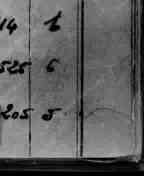 14 6
525 6
205 5